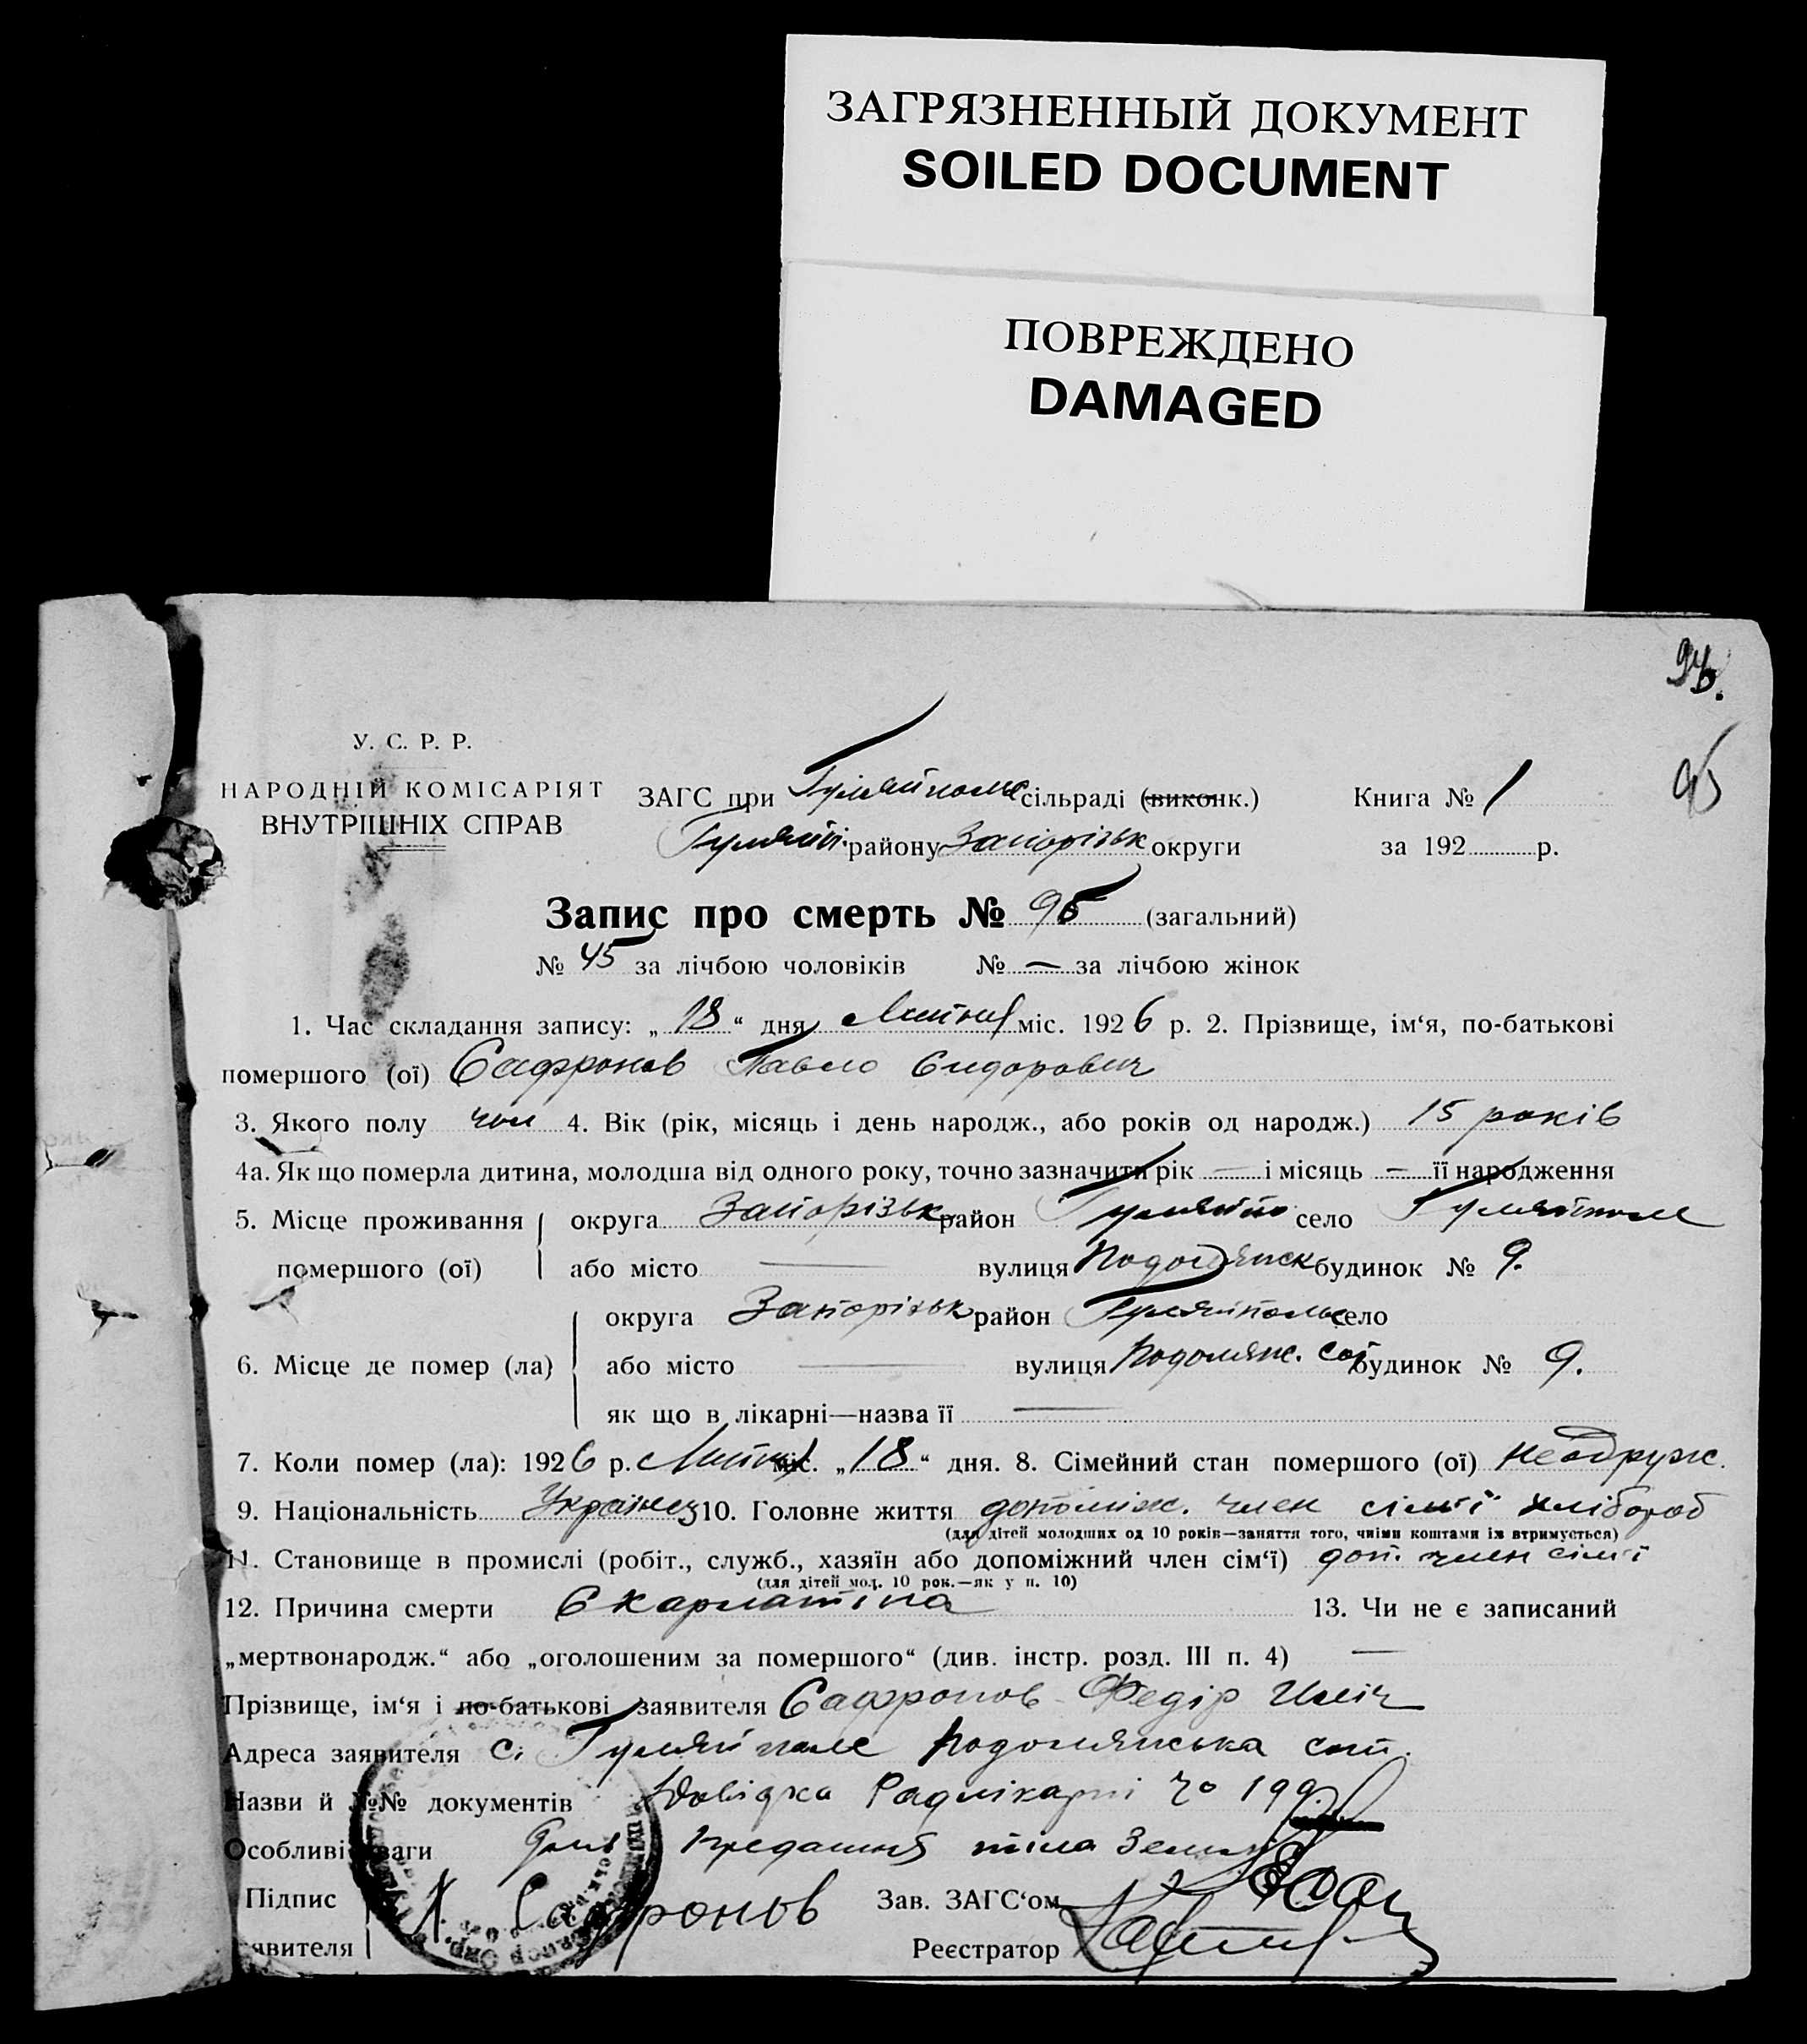 ЗАГРЯЗНЕННЫЙ ДОКУМЕНТ
SOILED DOCUMENT
ПОВРЕЖДЕНО
DAMAGED
У. С. Р. Р.
НАРОДНІЙ КОМІСАРІЯТ
ВНУТРІШНІХ СПРАВ
ЗАГС при Гуляйпольс сільраді (виконк.) Книга № 1
Гуляйп. району Запорізьк округи за 192 р.
95
Запис про смерть № 95 (загальний)
№ 45 за лічбою чоловіків № — за лічбою жінок
1. Час складання запису: „18“ дня Липня міс. 1926 р. 2. Прізвище, ім‘я, по-батькові
помершого (ої) Сафронов Павло Сидорович
3. Якого полу чол 4. Вік (рік, місяць і день народж., або років од народж.) 15 років
4а. Як що померла дитина, молодша від одного року, точно зазначити рік — і місяць — її народження
5. Місце проживання округа Запорізьк район Гуляйпо село Гуляйполе
помершого (ої) або місто — вулиця Подолянськ будинок № 9.
округа Запорізьк район Гуляйпольс село
6. Місце де помер (ла) або місто — вулиця Подолянс. сот будинок № 9.
як що в лікарні—назва її —
7. Коли помер (ла): 1926 р. Липня міс. „18“ дня. 8. Сімейний стан помершого (ої) Неодруж.
9. Національність Українец 10. Головне життя допоміж. член сім'ї хлібороб
(для дітей молодших од 10 років—заняття того, чиїми коштами їх втримується)
11. Становище в промислі (робіт., служб., хазяїн або допоміжний член сім‘ї) доп. член сім'ї
(для дітей мол. 10 рок.—як у п. 10)
12. Причина смерти Скарлатіна 13. Чи не є записаний
„мертвонародж.“ або „оголошеним за помершого“ (див. інстр. розд. III п. 4) —
Прізвище, ім‘я і по-батькові заявителя Сафронов Федір Ілліч
Адреса заявителя с. Гуляйполе Подолянська сот.
Назви й №№ документів Довідка Радлікарні
Особливі уваги предання тіла Землі
Підпис Сафронов Зав. ЗАГС‘ом
явителя Реєстратор